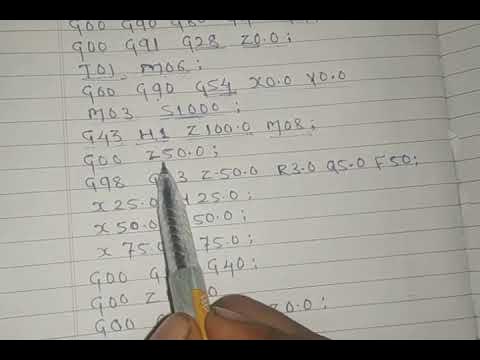 G00 G90 G80
G00 G91 G28 Z0.0;
T01 M06;
G00 G90 G54 X0.0 Y0.0
M03 S1000;
G43 H1 Z100.0 M08;
G00 Z50.0;
G98 3 Z-50.0 R3.0 Q5.0 F50;
X25.0 25.0;
X50.0 50.0;
X 75.0 75.0;
G00 G40;
G00 Z
G00 Z0.0;